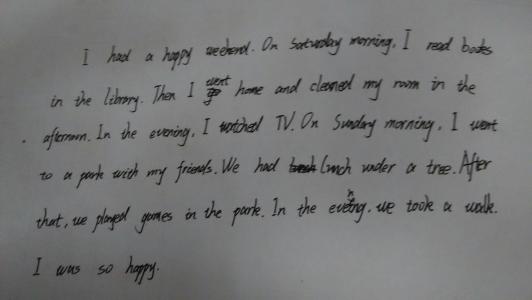 I had a happy weekend. On Saturday morning, I read books
in the library. Then I went home and cleaned my room in the
afternoon. In the evening, I watched TV. On Sunday morning, I went
to a park with my friends. We had lunch under a tree. After
that, we played games in the park. In the evening, we took a walk.
I was so happy.